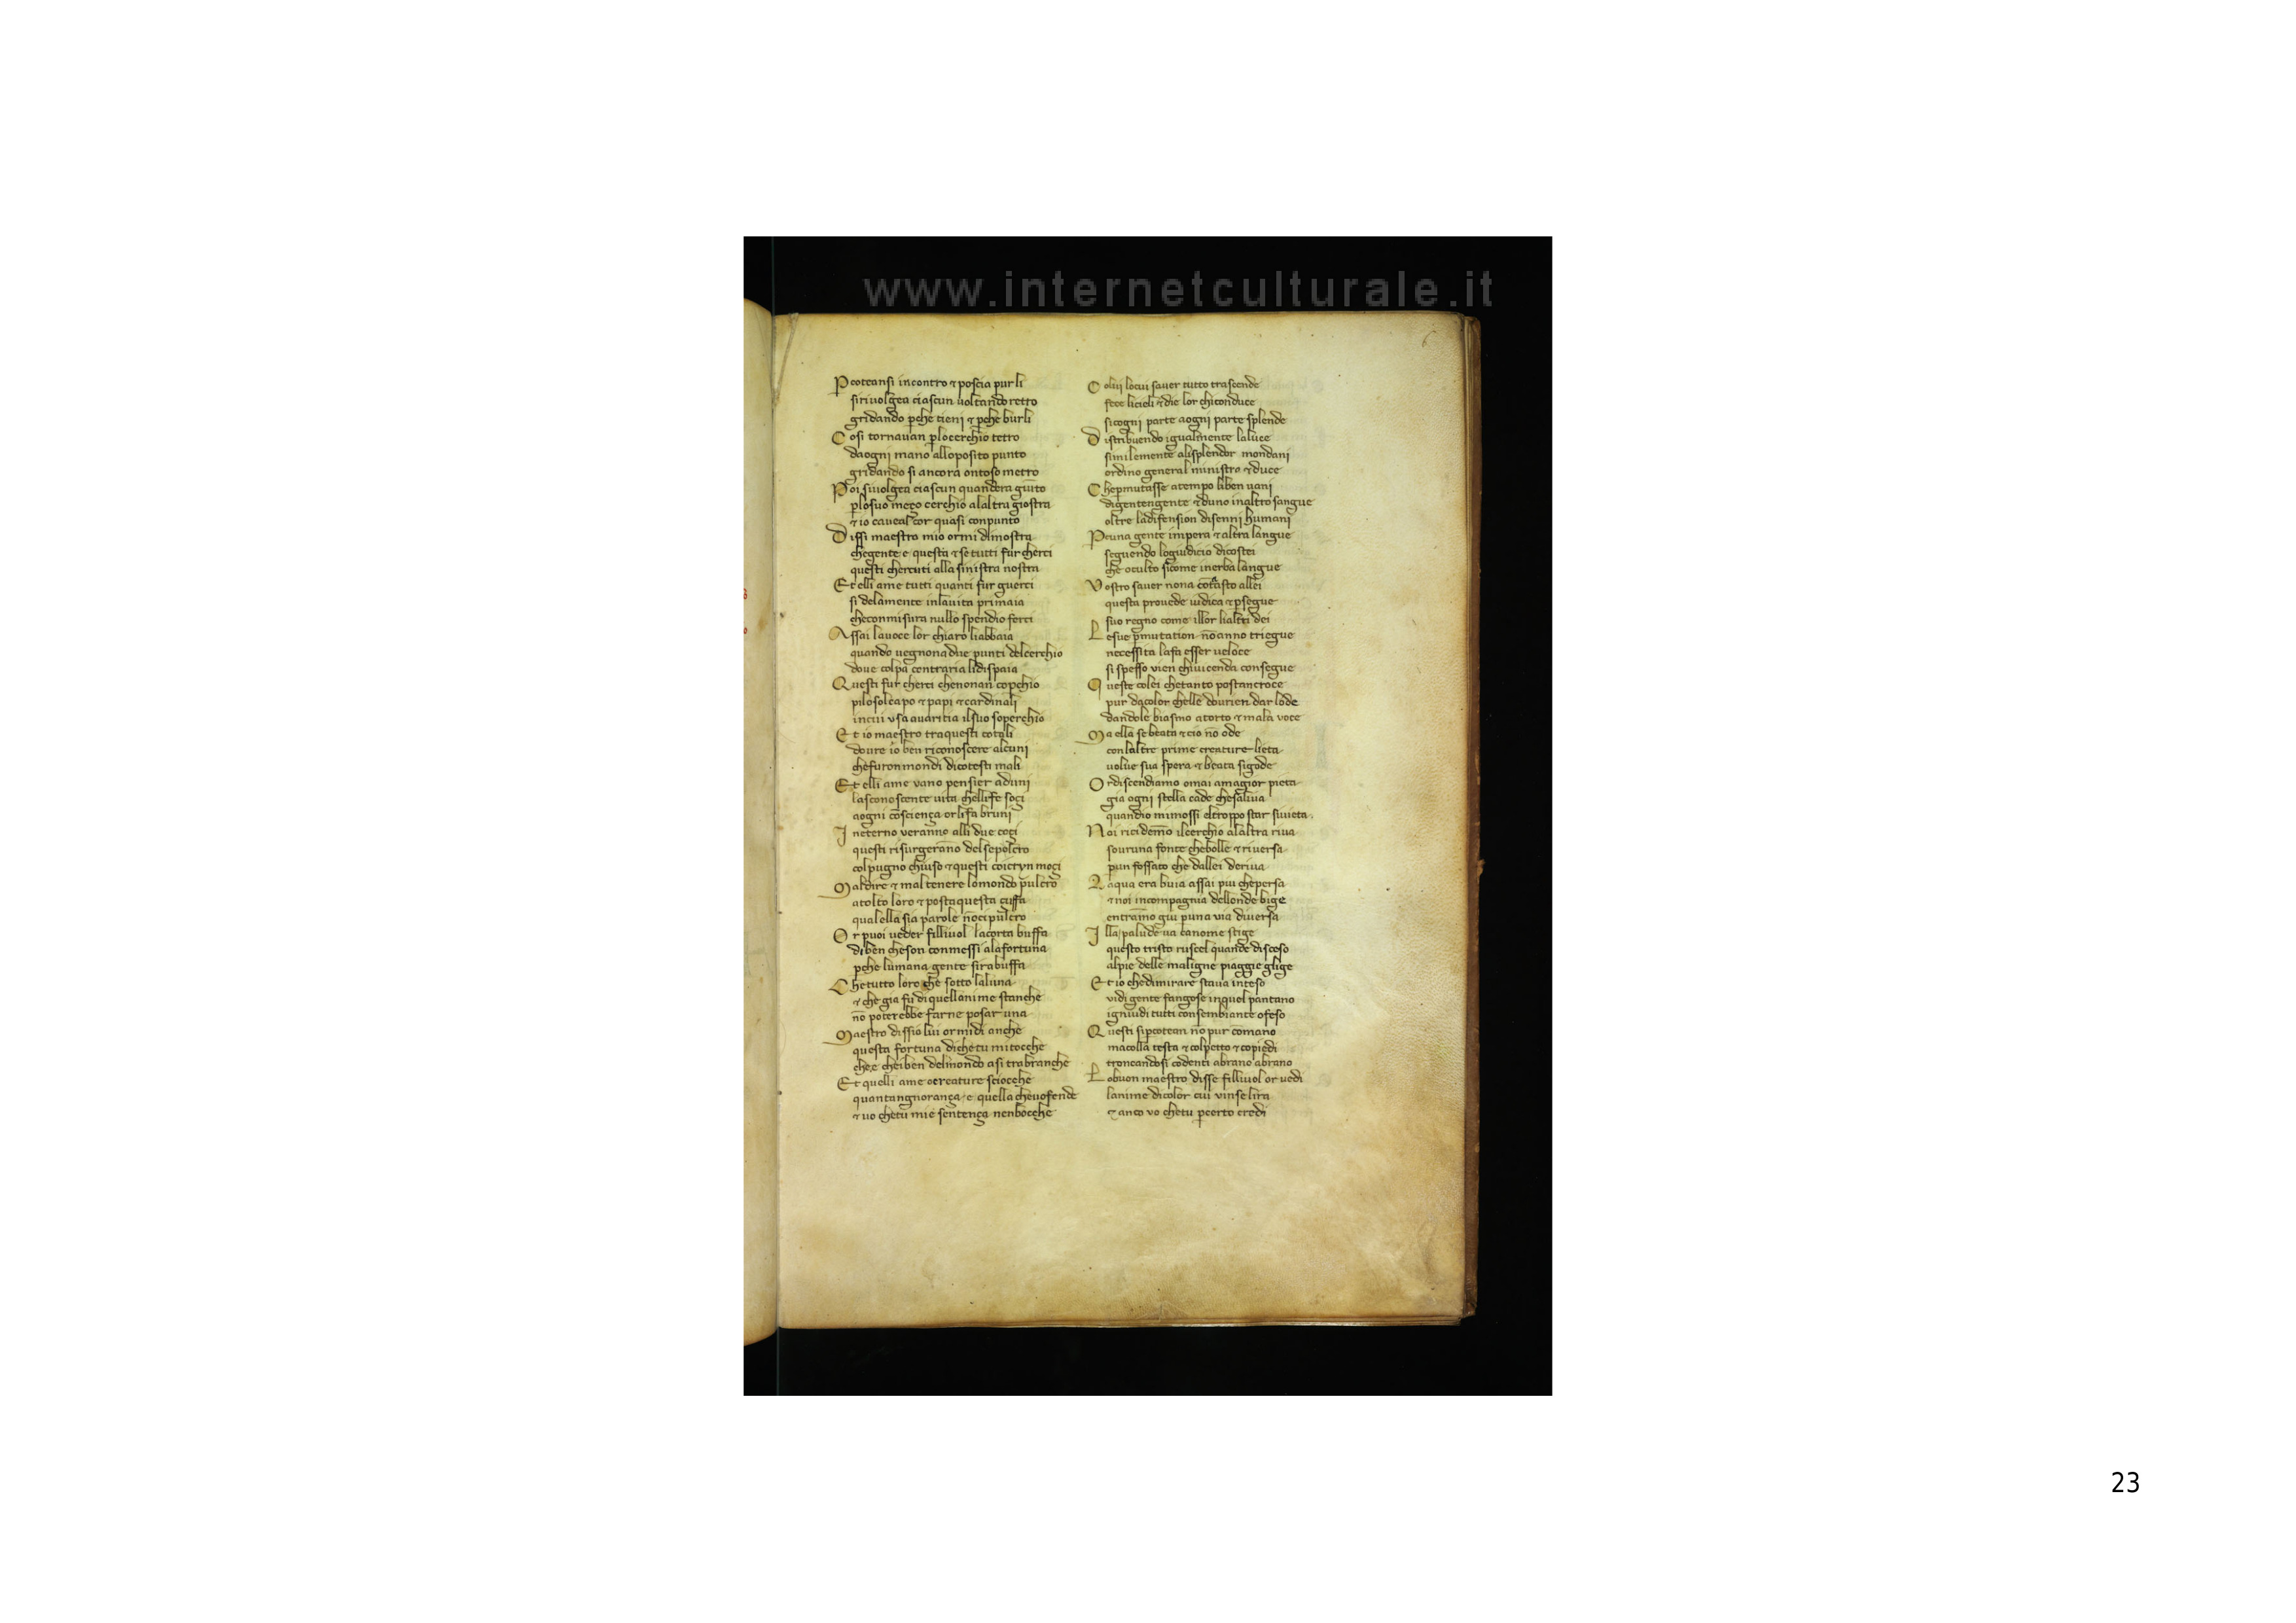 www.internetculturale.it
6
Pcoteansi incontro ⁊ poscia pur li
siriuolgea ciascun uoltando retro
gridando p̱che tieni ⁊ p̱che burli
Cosi tornauan p̱locerchio tetro
daogni mano alloposito punto
gridando si ancora ontoso metro
Poi siuolgea ciascun quandera giũto
p̱losuo meço cerchio alaltra giostra
⁊ io cauea'l cor quasi conpunto
Dissi maestro mio ormi dimostra
chegente e questa ⁊ se tutti fur cherci
questi chercuti alla sinistra nostra
Et elli ame tutti quanti fur guerci
si delamente inlauita primaia
checonmisura nullo spendio ferci
Assai lauoce lor chiaro liabbaia
quando uegnona due punti delcerchio
doue colpa contraria lidispaia
Questi fur cherci chenonan cop̱chio
pilosolcapo ⁊ papi ⁊ cardinali
incui usa auaritia ilsuo soperchio
Et io maestro traquesti cotali
doure io ben riconoscere alcuni
chefuron mondi dicotesti mali
Et elli ame vano pensier aduni
lasconoscente uita chellife soçi
aogni cõsciença or lifa bruni
Ineterno veranno alli due coçi
questi risurgerãno delsepolcro
colpugno chiuso ⁊ questi coicryn moçi
Maldire ⁊ mal tenere lomondo pulcro
atolto loro ⁊ posta questa çuffa
qualella sia parole nõcipulcro
Or puoi ueder filliuol lacorta buffa
diben cheson conmessi alafortuna
p̱che lumana gente sirabuffa
Che tutto loro che sotto laluna
⁊ che gia fu di quellanime stanche
nõ poterebbe farne posar una
Maestro dissio lui or midi anche
questa fortuna dichetu mitocche
che e cheiben delmondo asi trabranche
Et quelli ame o creature sciocche
quantangnorança e quella cheuofende
⁊ uo chetu mie sentença nenbocche
Colui locui sauer tutto trascende
fece licieli ⁊ die lor chiconduce
sicogni parte aogni parte splende
Distribuendo igualmente laluce
similemente alisplendor mondani
ordino general ministra ⁊ duce
Chep̱mutasse atempo liben uani
digentengente ⁊ duno inaltro sangue
oltre ladifension disenni humani
Pcuna gente impera ⁊ altra langue
seguendo logiudicio dicostei
che oculto sicome inerba langue
Vostro sauer nona cõtasto allei
questa prouede iudica ⁊ p̱segue
suo regno come illor lialtri dei
Lesue p̱mutation nõanno triegue
necessita lafa esser ueloce
si spesso vien chiuicenda consegue
Queste colei chetanto postancroce
pur dacolor chelle dourien dar lode
dandole biasmo atorto ⁊ mala voce
Ma ella se beata ⁊ cio nõ ode
conlaltre prime creature lieta
uolue sua spera ⁊ beata sigode
Or discendiamo omai amagior pieta
gia ogni stella cade chesaliua
quandio mimossi eltroppo star siuieta
Noi ricidemo ilcerchio alaltra riua
souruna fonte chebolle ⁊ riuersa
p̱un fossato che dallei deriua
Laqua era buia assai piu chepersa
⁊ noi incompagnia dellonde bige
entramo giu p̱una via diuersa
Illa palude ua canome stige
questo tristo ruscel quande disceso
alpie delle maligne piaggie glige
Et io chedimirare staua inteso
vidi gente fangose inquel pantano
igniudi tutti consembiante ofeso
Questi sip̱cotean nõ pur cõmano
macolla testa ⁊ colpetto ⁊ copiedi
troncandosi codenti abrano abrano
Lobuon maestro disse filliuol or uedi
lanime dicolor cui vinse lira
⁊ anco vo chetu p̱certo credi
23